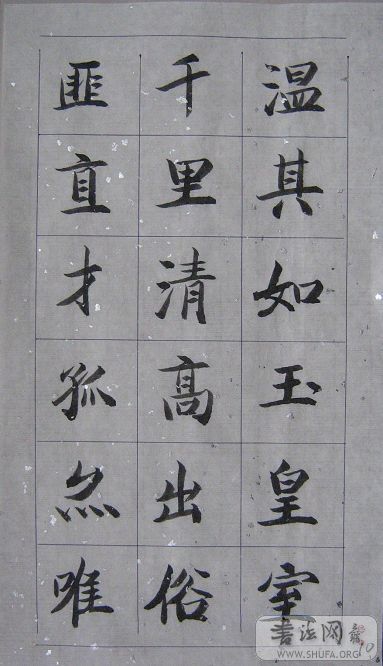 温其如玉皇室
千里清高出俗
匪直才孤唯
書法网
WWW.SHUFA.ORG